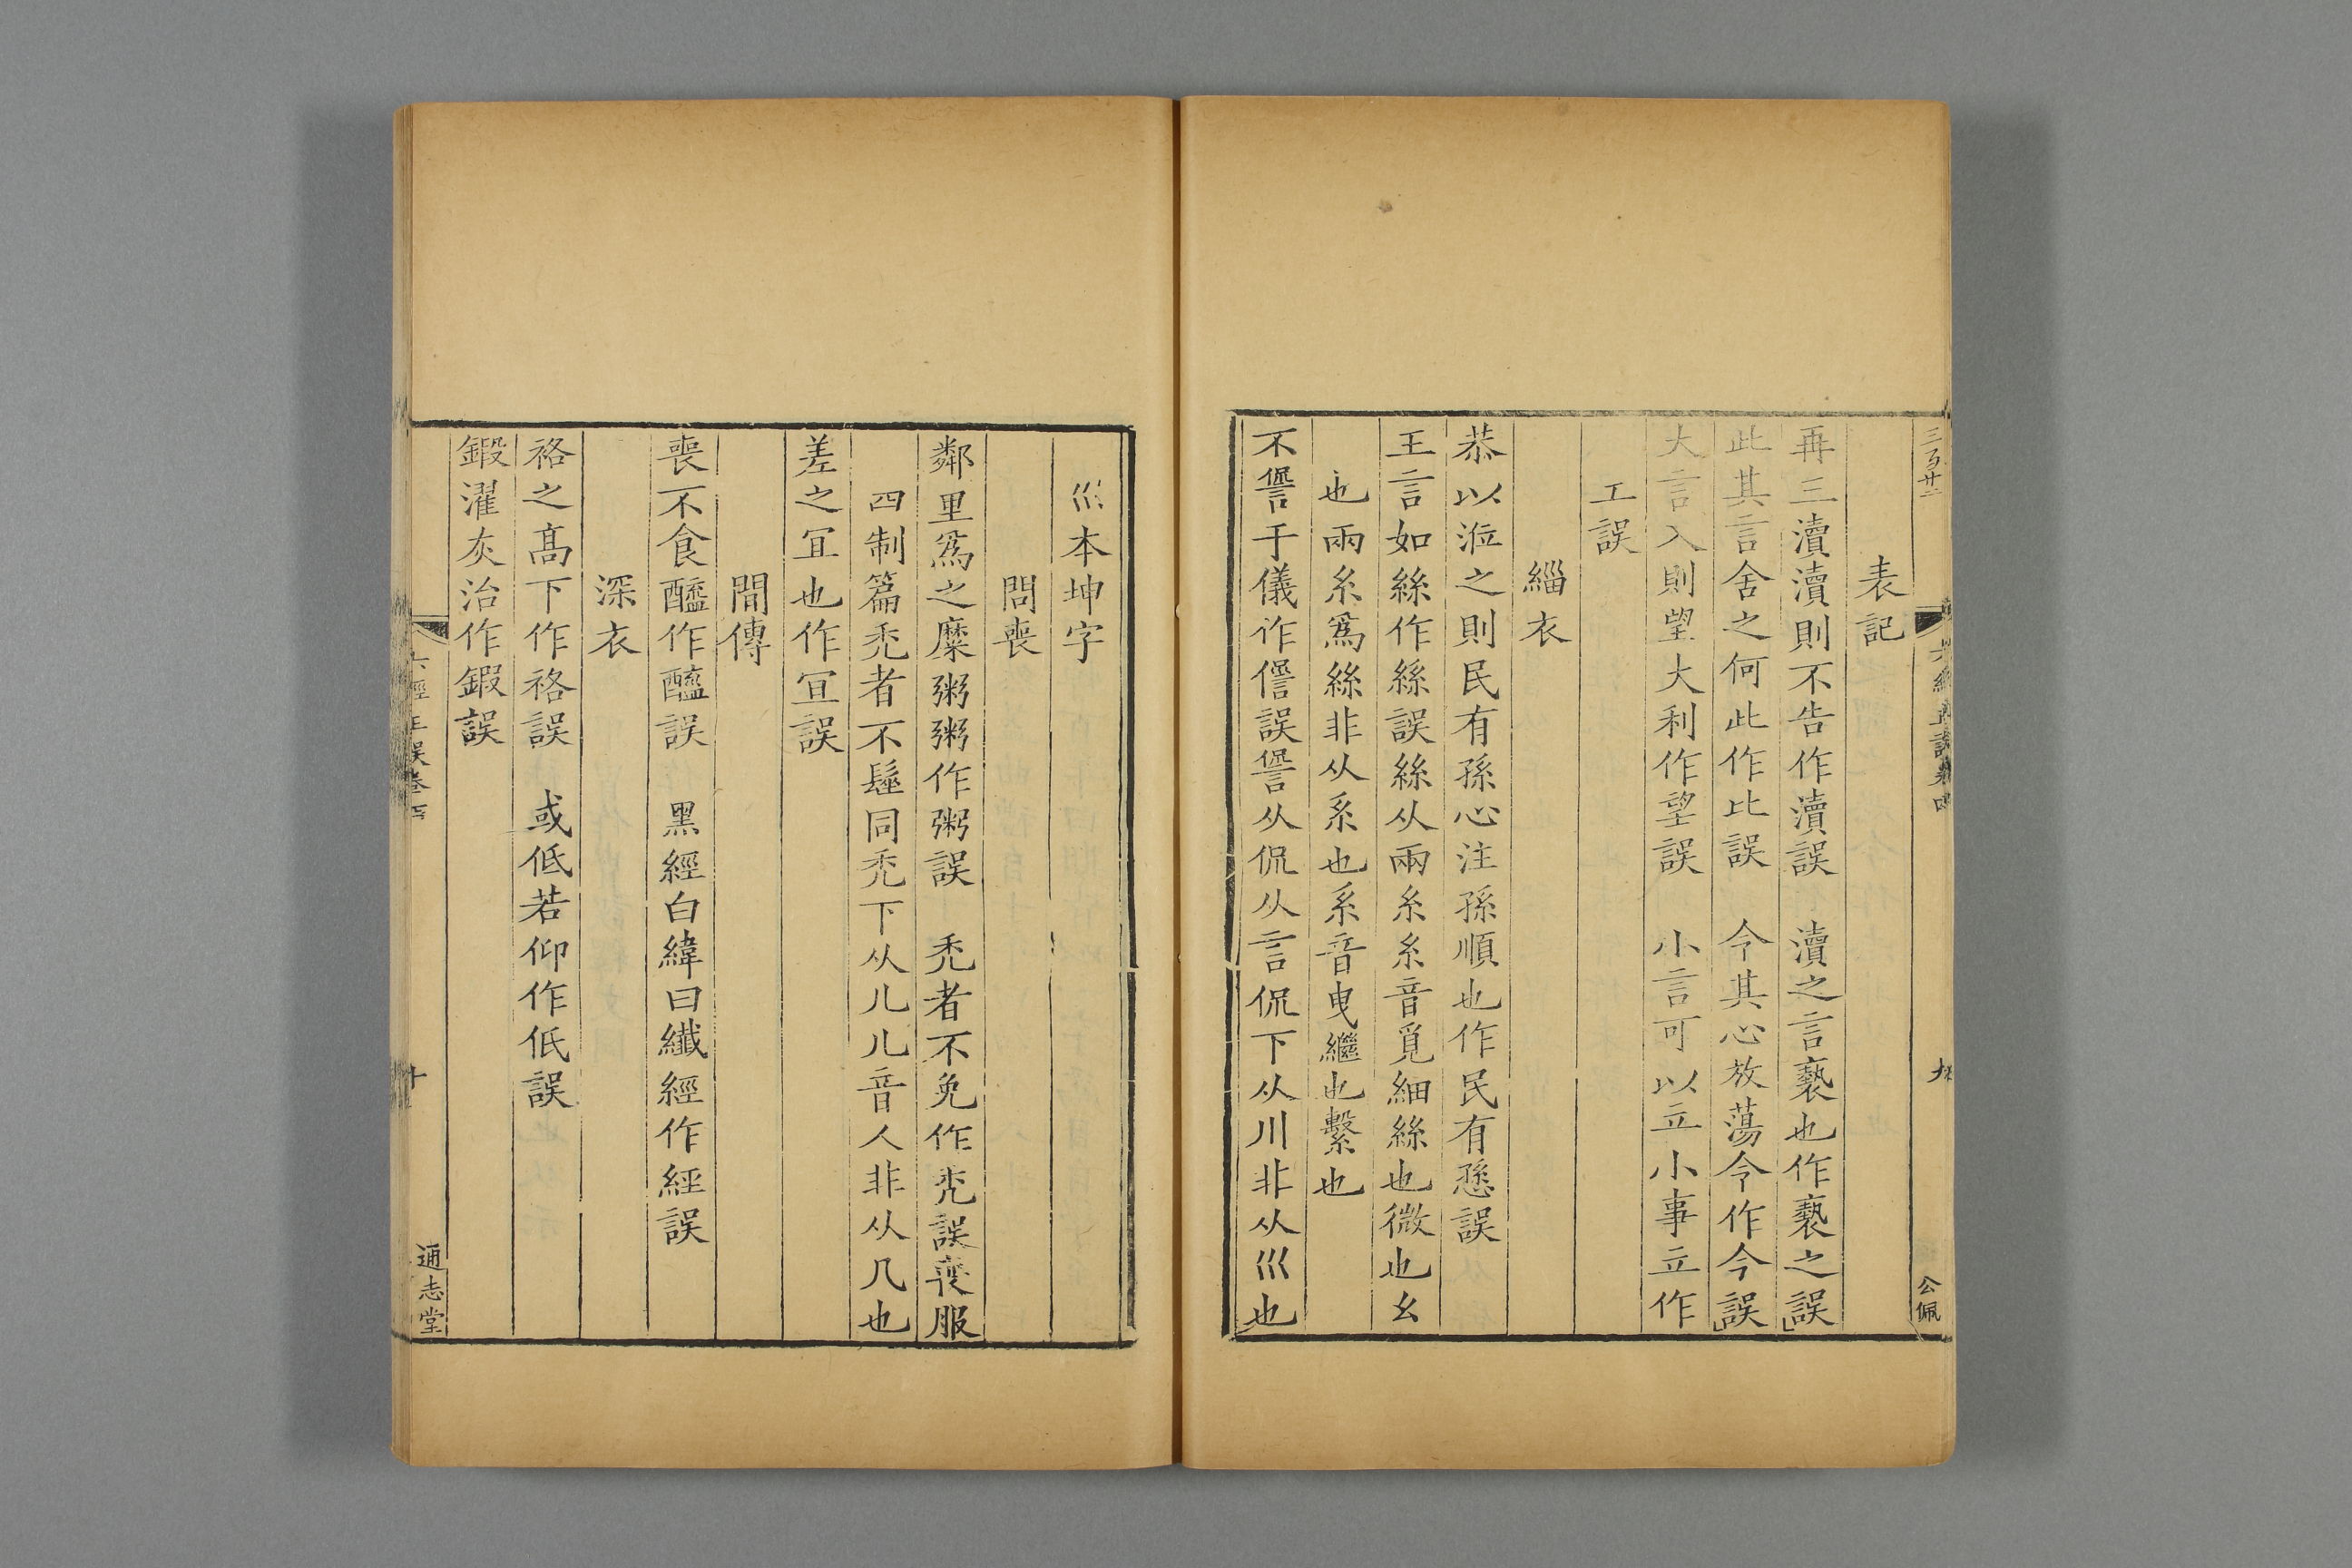 表記
再三瀆瀆則不告作瀆誤　瀆之言褻也作褻之誤
此其言舍之何此作比誤　令其心放蕩令作今誤
大言入則望大利作望誤　小言可以立小事立作
工誤
緇衣
恭以涖之則民有孫心注孫順也作民有愻誤
王言如絲作絲誤絲从兩糸糸音覓細絲也微也幺
也兩糸爲絲非从系也系音曳繼也繫也
不諐于儀作僭誤諐从侃从言侃下从川非从巛也
巛本坤字
問喪
鄰里爲之糜粥粥作粥誤　禿者不免作禿誤喪服
四制篇禿者不髽同禿下从儿儿音人非从几也
差之宜也作冝誤
間傳
喪不食醯作醯誤　黑經白緯曰纖經作經誤
深衣
袼之高下作袼誤　或低若仰作低誤
鍛濯灰治作鍜誤
三百廿二
六經正誤卷四
九
公佩
六經正誤卷四
十
通志堂